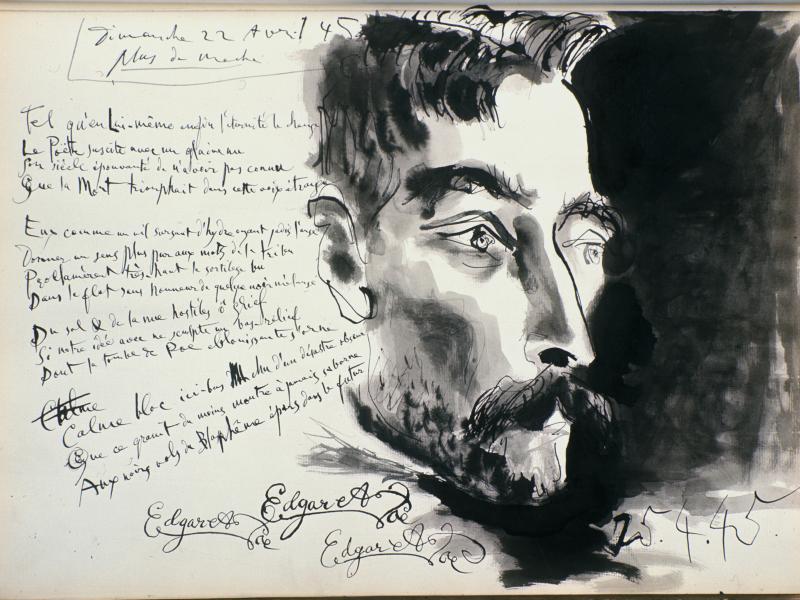 Dimanche 22 Avril 45
Plus de
Tel qu'en Lui-même enfin l'éternité le change
Le Poëte suscite avec un glaive nu
Son siècle épouvanté de n'avoir pas connu
Que la Mort triomphait dans cette voix étrange
Eux comme un vil sursaut d'hydre oyant jadis l'ange
Donner un sens plus pur aux mots de la tribu
Proclamèrent très haut le sortilège bu
Dans le flot sans honneur de quelque noir mélange
Du sol & de la nue hostiles ô grief
Si notre idée avec ne sculpte un bas-relief
Dont la tombe de Poe éblouissante s'orne
Calme
Calme bloc ici-bas chu d'un désastre obscur
Que ce granit du moins montre à jamais sa borne
Aux noirs vols de Blasphème épars dans le futur
Edgar A
Edgar A
Edgar A
25.4.45